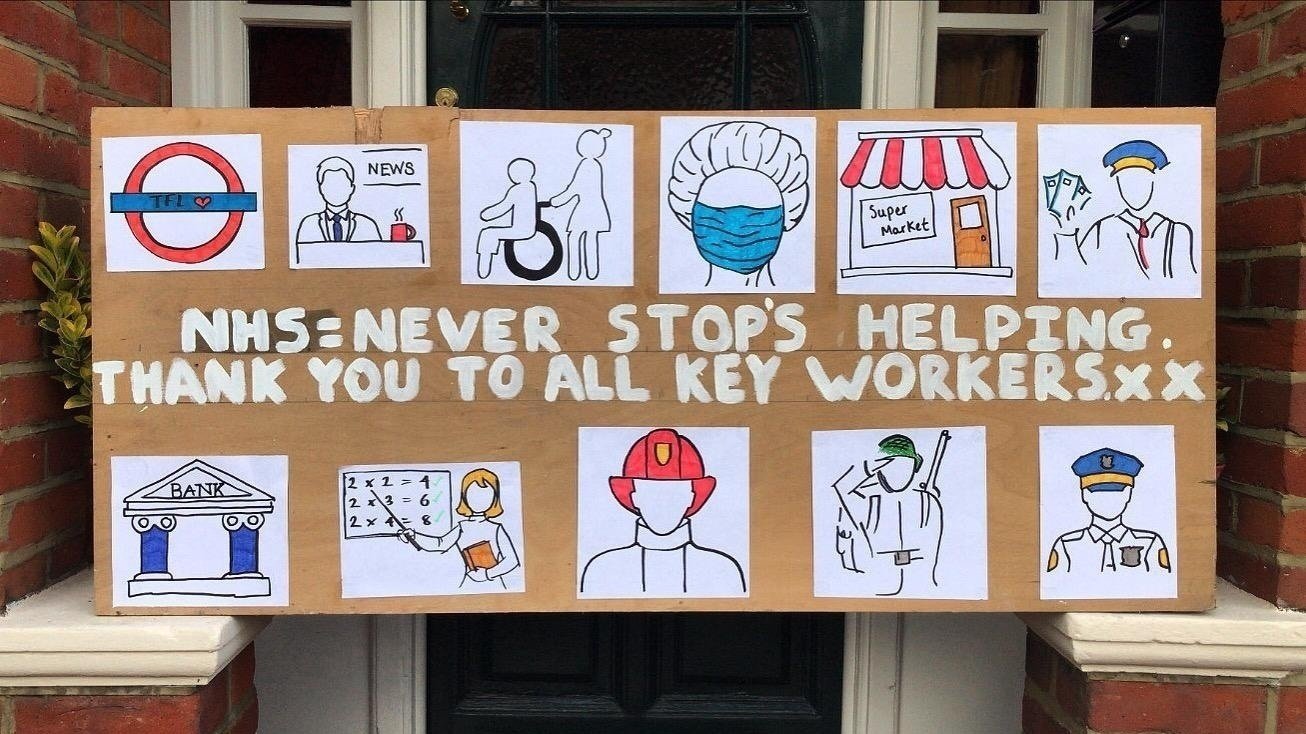 TFL
NEWS
Super
Market
NHS=NEVER STOP'S HELPING.
THANK YOU TO ALL KEY WORKERS.xx
BANK
2 x 2 = 4✓
2 x 3 = 6✓
2 x 4 = 8✓